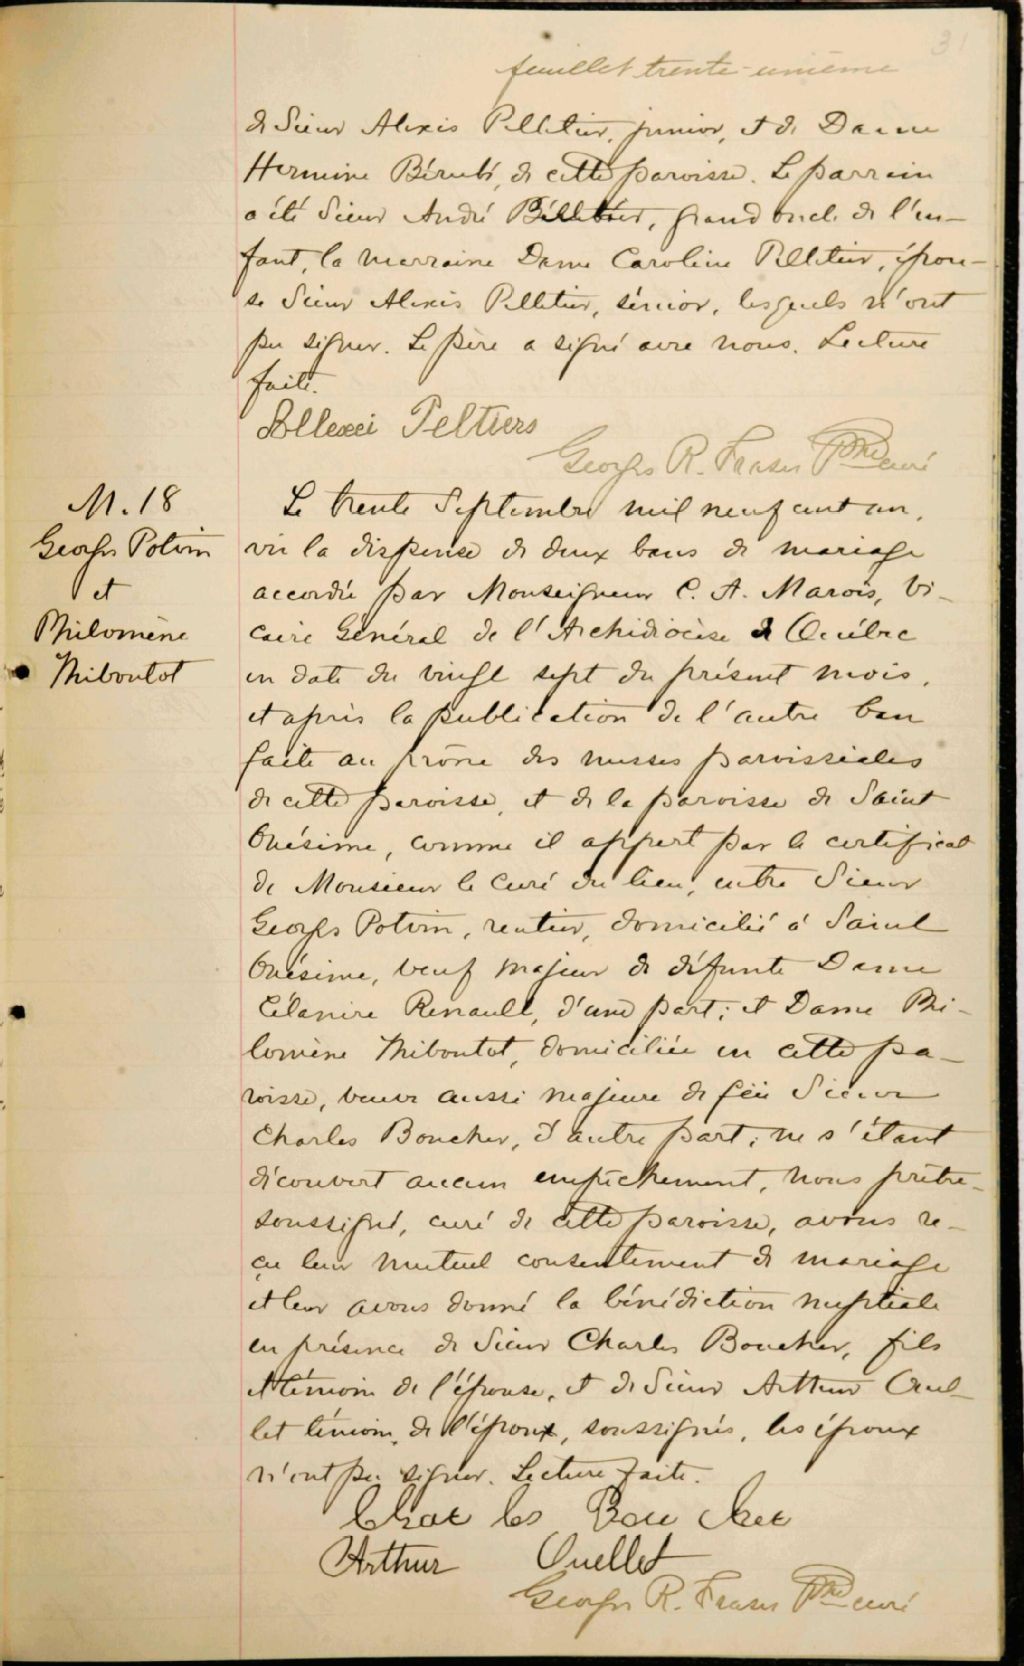 31
feuillet trente-unième
de Sieur Alexis Pelletier, junior, et de Dame
Hermine Bérubé, de cette paroisse. Le parrain
a été Sieur André Pelletier, grand oncle de l'en-
fant, la marraine Dame Caroline Pelletier, épou-
se Sieur Alexis Pelletier, sénior, lesquels n'ont
pu signer. Le père a signé avec nous. Lecture
faite.
Allexci Peltiers
Georges R. Fraser Ptre curé
M. 18
Georges Potvin
et
Philomène
Thiboutot
Le trente Septembre mil neuf cent un,
vu la dispense de deux bans de mariage
accordée par Monseigneur C. A. Marois, Vi-
caire Général de l'Archidiocèse de Québec
en date du vingt sept du présent mois,
et après la publication de l'autre ban
faite au prône des messes paroissiales
de cette paroisse, et de la paroisse de Saint
Onésime, comme il appert par le certificat
de Monsieur le Curé du lieu, entre Sieur
Georges Potvin, rentier, domicilié à Saint
Onésime, veuf majeur de défunte Dame
Célanire Renault, d'une part; et Dame Phi-
lomène Thiboutot, domiciliée en cette pa-
roisse, veuve aussi majeure de feu Sieur
Charles Boucher, d'autre part; ne s'étant
découvert aucun empêchement, nous prêtre-
soussigné, curé de cette paroisse, avons re-
çu leur mutuel consentement de mariage
et leur avons donné la bénédiction nuptiale
en présence de Sieur Charles Boucher, fils
et témoin de l'épouse, et de Sieur Arthur Ouel-
let témoin de l'époux, soussignés, les époux
n'ont pu signer. Lecture faite.
Charles Boucher
Arthur Ouellet
Georges R. Fraser Ptre curé